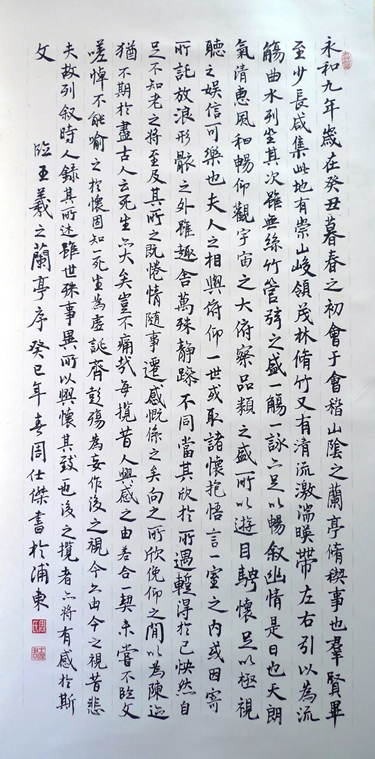 永和九年歲在癸丑暮春之初會于會稽山陰之蘭亭脩禊事也羣賢畢
至少長咸集此地有崇山峻領茂林脩竹又有清流激湍暎帶左右引以為流
觴曲水列坐其次雖無絲竹管弦之盛一觴一詠亦足以暢叙幽情是日也天朗
氣清惠風和暢仰觀宇宙之大俯察品類之盛所以遊目騁懷足以極視
聽之娛信可樂也夫人之相與俯仰一世或取諸懷抱悟言一室之內或因寄
所託放浪形骸之外雖趣舍萬殊靜躁不同當其欣於所遇蹔得於己怏然自
足不知老之將至及其所之既惓情隨事遷感慨係之矣向之所欣俛仰之間以為陳迹
猶不期於盡古人云死生亦大矣豈不痛哉每攬昔人興感之由若合一契未嘗不臨文
嗟悼不能喻之於懷固知一死生為虛誕齊彭殤為妄作後之視今亦由今之視昔悲
夫故列叙時人錄其所述雖世殊事異所以興懷其致也後之攬者亦將有感於斯
文 臨王羲之蘭亭序癸巳年春周仕傑書於浦東